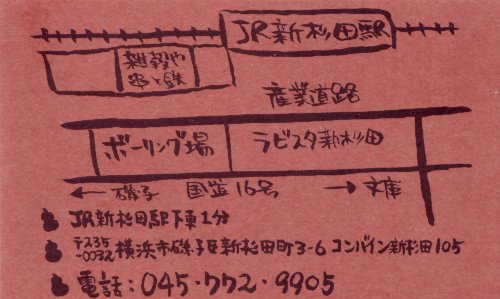 JR新杉田駅
雑穀や
串と鉄
産業道路
ボーリング場
ラビスタ新杉田
← 磯子 国道16号 → 文庫
JR新杉田駅下車1分
〒235-0032 横浜市磯子区新杉田町3-6 コンバイン新杉田105
電話:045・772・9905